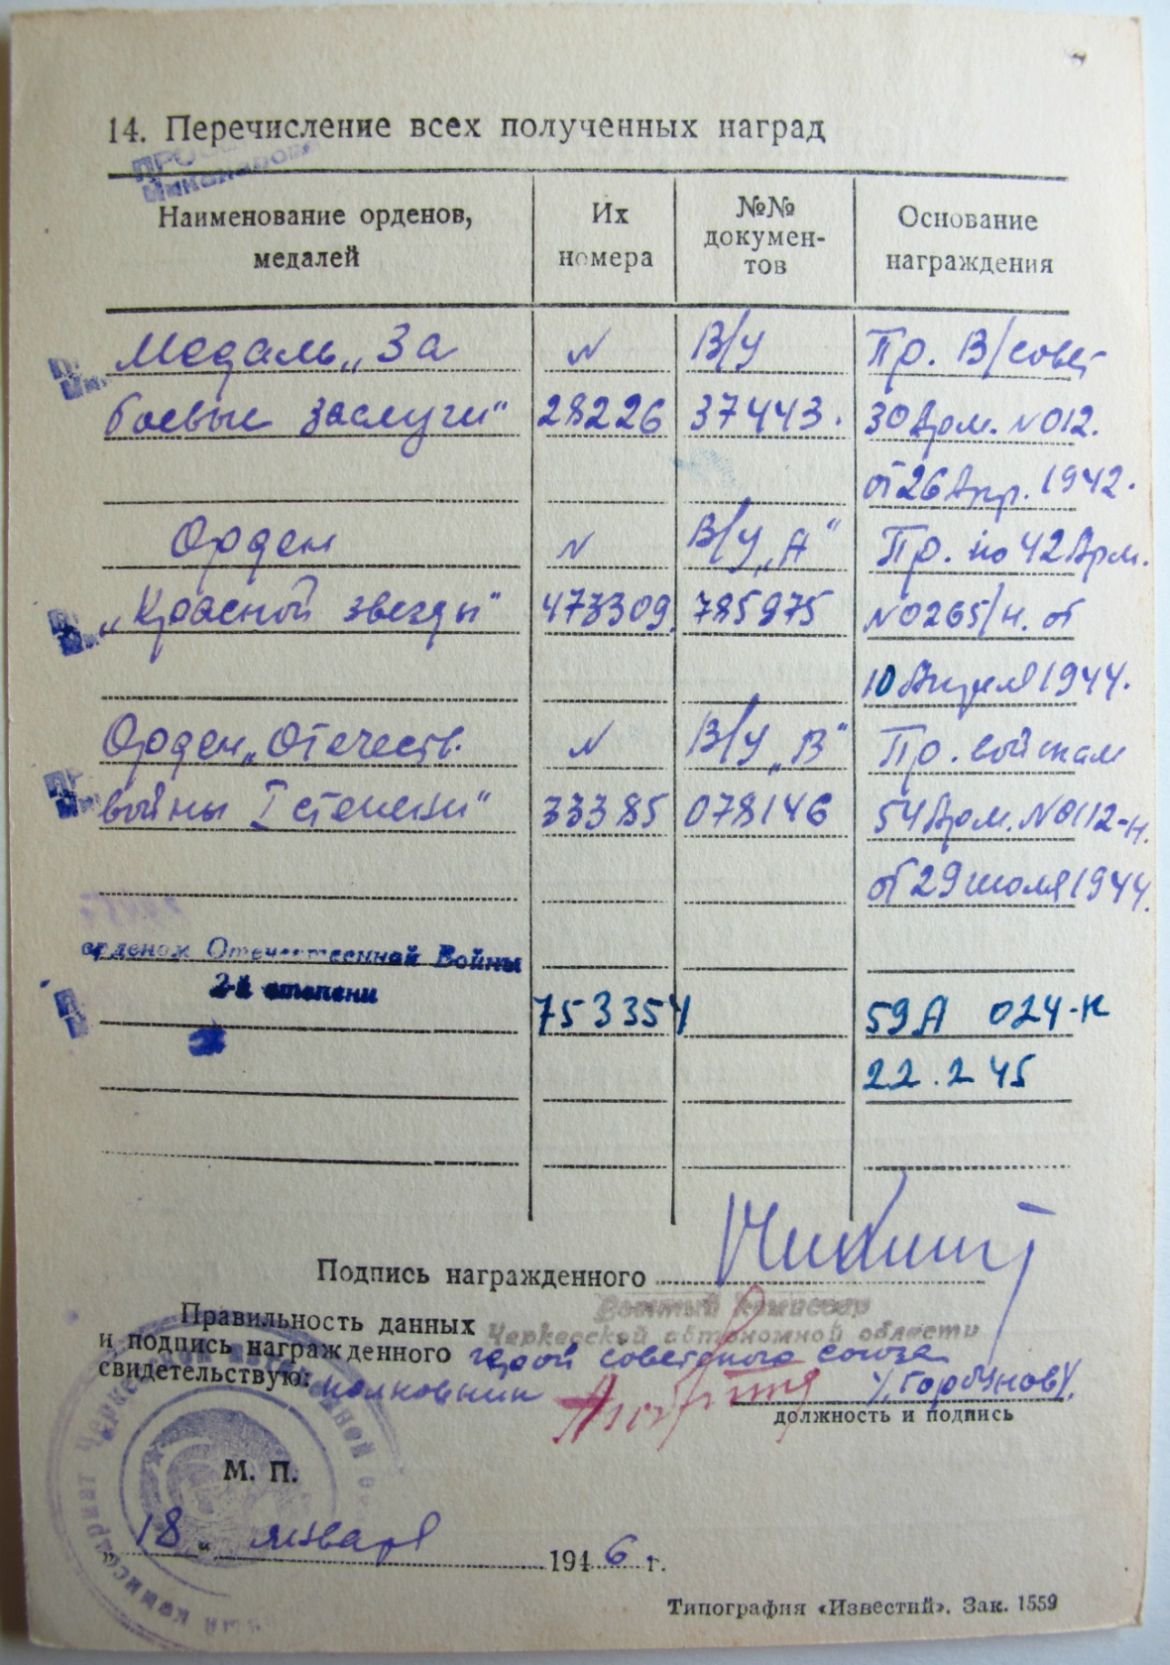 14. Перечисление всех полученных наград
Наименование орденов, медалей
Их номера
№№ докумен-
тов
Основание награждения
Медаль „За № В/у Пр. В/совет
боевые заслуги" 28226 37443. 30 Арм. №012.
от 26 Апр. 1942.
Орден № В/у „А" Пр. по 42 Арм.
„Красной звезды" 473309. 785975 №0265/н. от
10 Апреля 1944.
Орден „Отечеств. № В/у „В" Пр. войскам
войны I степени" 33385 078146 54 Арм. №0112-н.
от 29 июля 1944.
орденом Отечественной Войны
2-й степени
753354 59А 024-н
22.2 45
Подпись награжденного
Правильность данных
и подпись награжденного
свидетельствую:
Военный Комиссар
Черкесской автономной области
герой советского союза
полковник /.Горбунов/.
должность и подпись
М. П.
„18" января 1946 г.
Типография «Известий». Зак. 1559